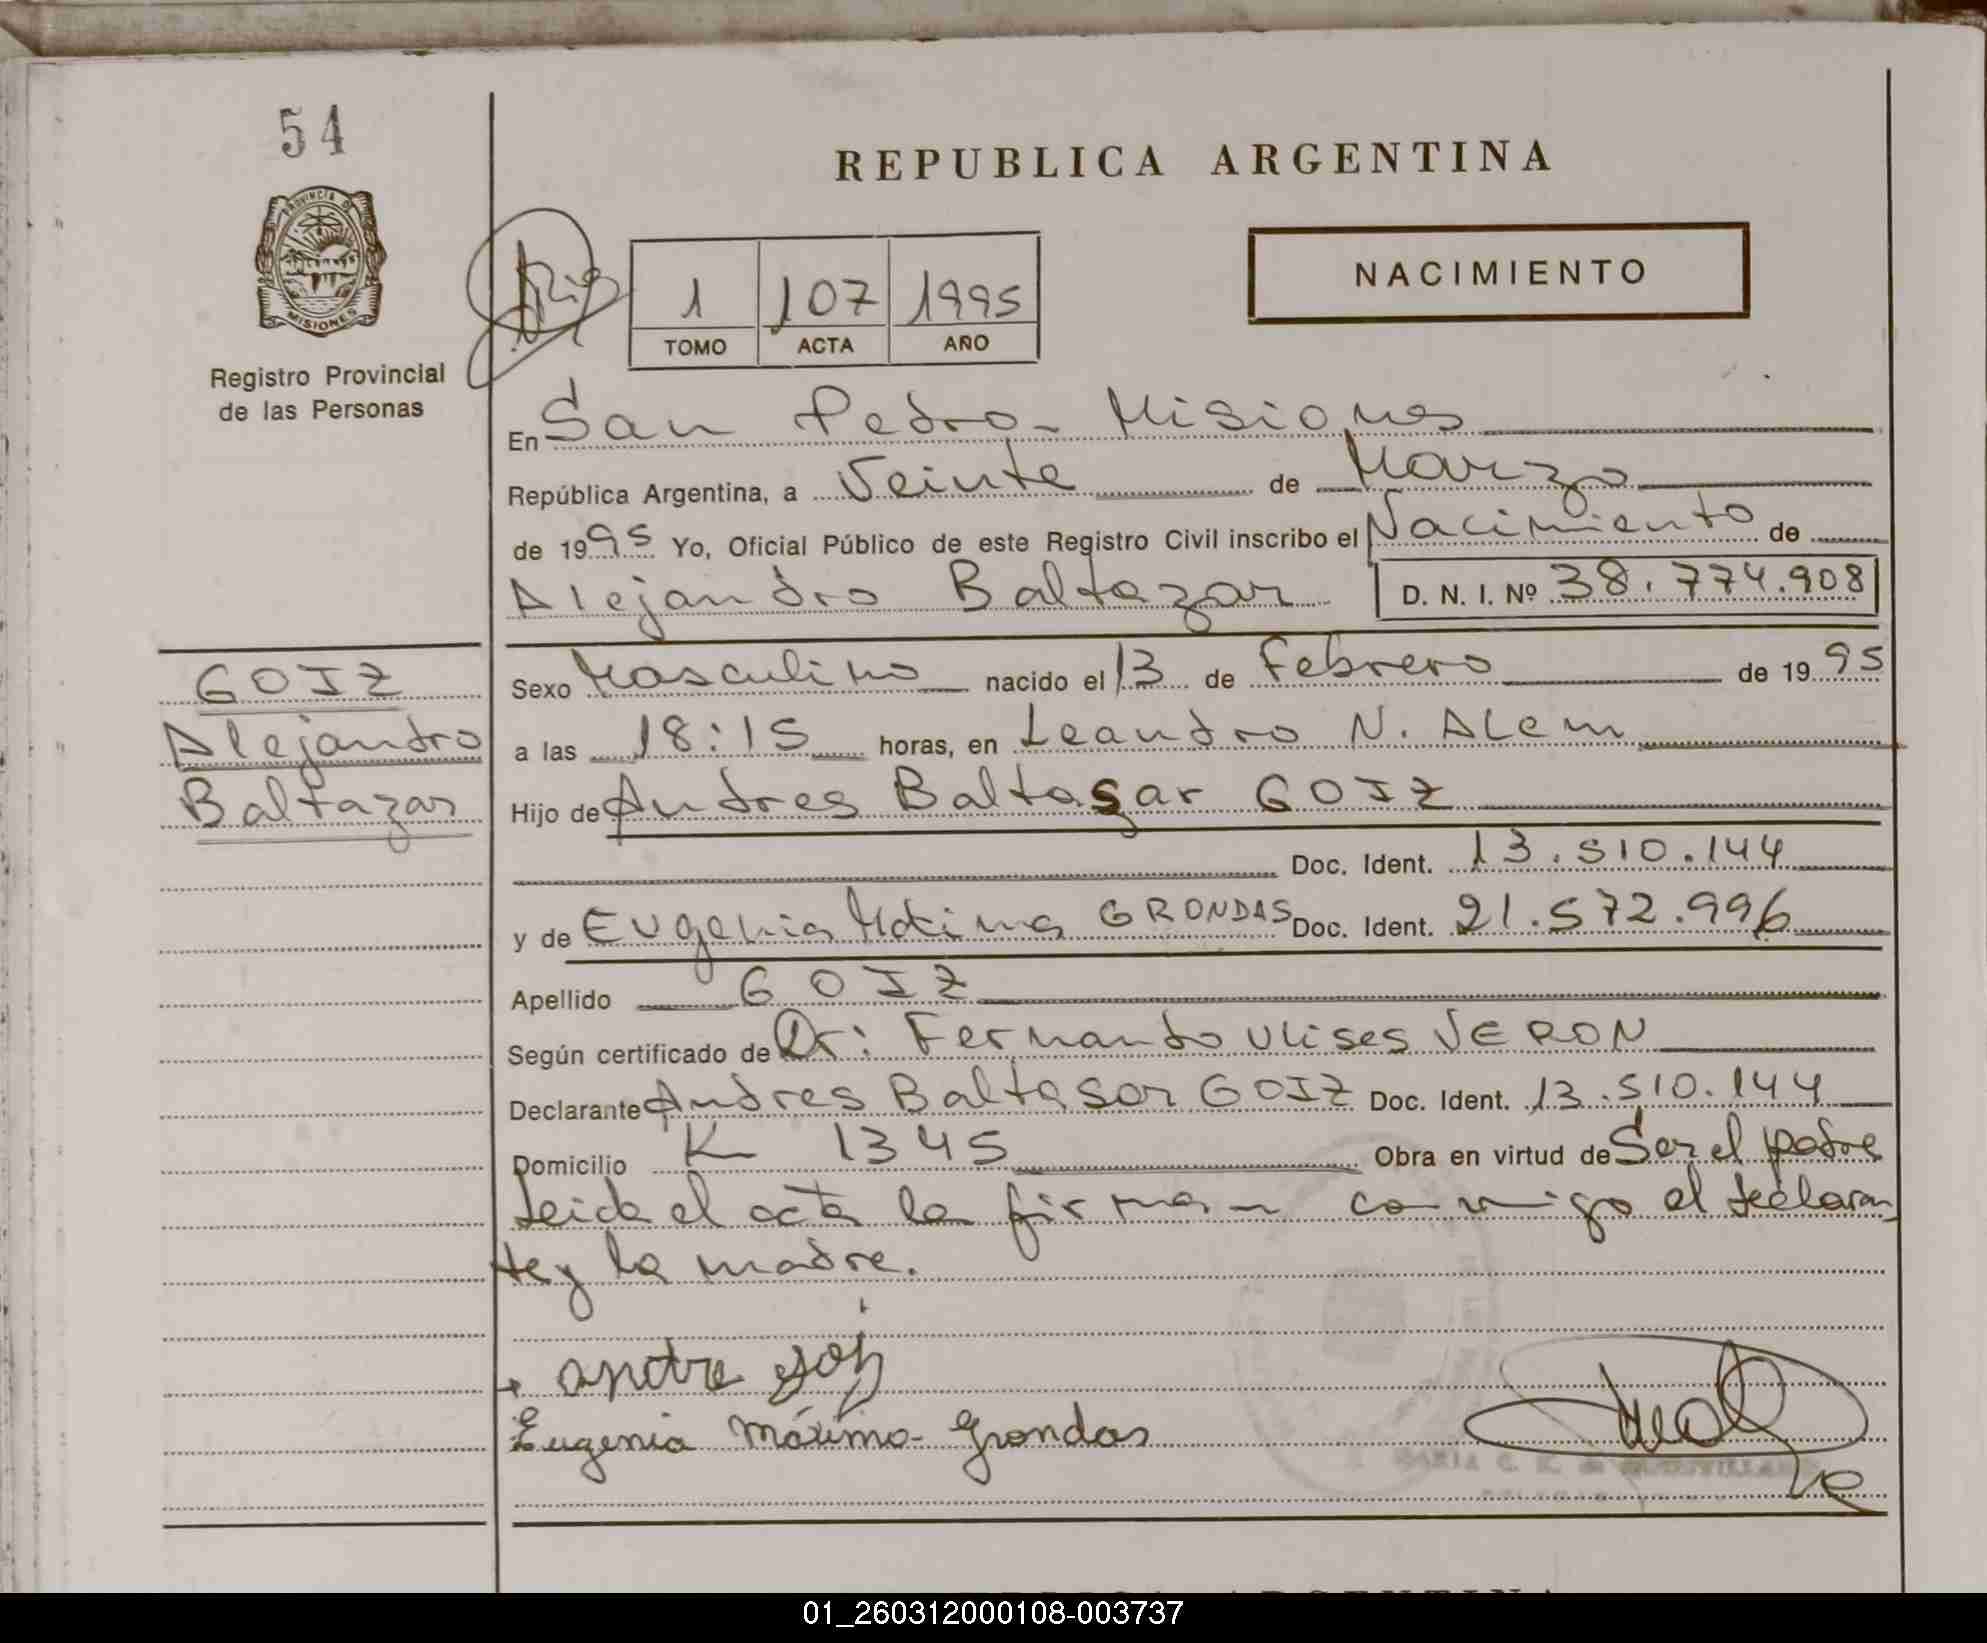 54
REPUBLICA ARGENTINA
PROVINCIA D
MISIONES
Registro Provincial
de las Personas
NACIMIENTO
1 107 1995
TOMO ACTA AÑO
En San Pedro - Misiones
República Argentina, a Veinte de Marzo
de 1995 Yo, Oficial Público de este Registro Civil inscribo el Nacimiento de
Alejandro Baltazar D. N. I. Nº 38.774.908
GOIZ
Alejandro
Baltazar
Sexo Masculino nacido el 13 de Febrero de 1995
a las 18:15 horas, en Leandro N. Alem
Hijo de Andres Baltasar GOIZ
Doc. Ident. 13.510.144
y de Eugenia Máxima GRONDAS Doc. Ident. 21.572.996
Apellido GOIZ
Según certificado de Dr: Fernando Ulises VERON
Declarante Andres Baltasar GOIZ Doc. Ident. 13.510.144
Domicilio K 1345 Obra en virtud de Ser el padre
Leida el acta la firman conmigo el declaran
te y la madre.
Eugenia Máxima Grondas
MARIA C.
01_260312000108-003737